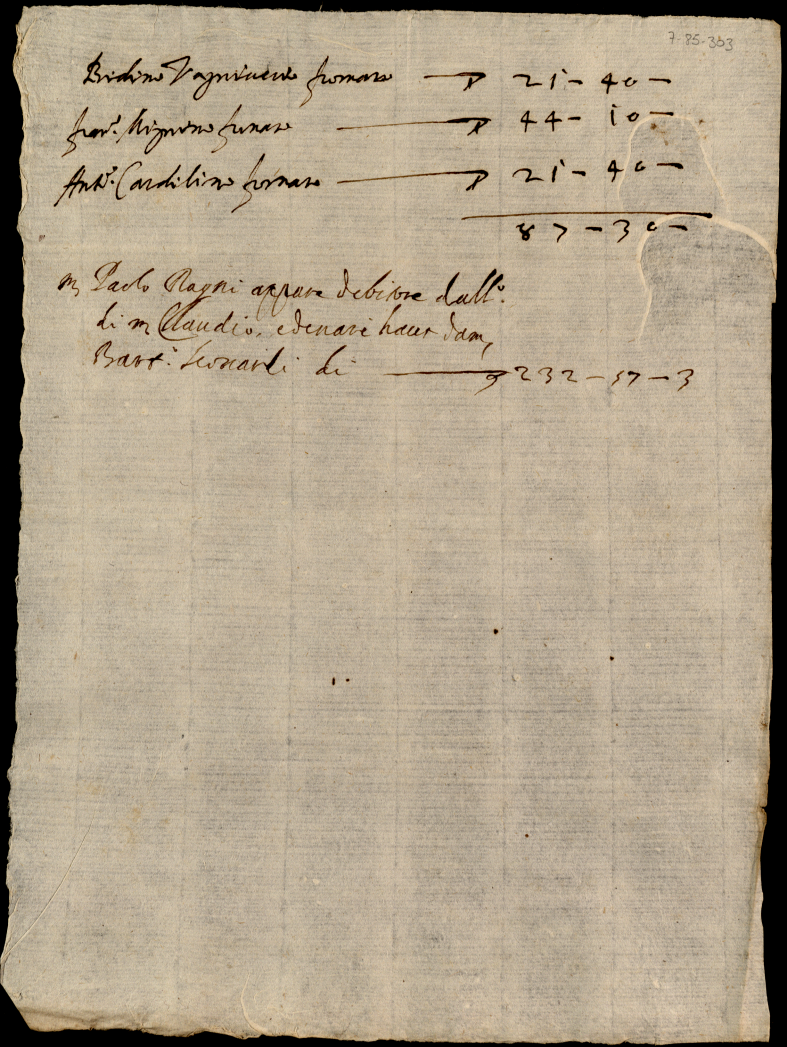 7-85-353
fornaro 21 - 40 -
fran.º fornaro 44 - 10 -
Ant.º Cardilino fornaro 21 - 40 -
87 - 30 -
m Paolo Ragni appare debitore dall.º
di m Claudio, e denari haver dam,
Bart.º Leonardi di 232 - 57 - 3